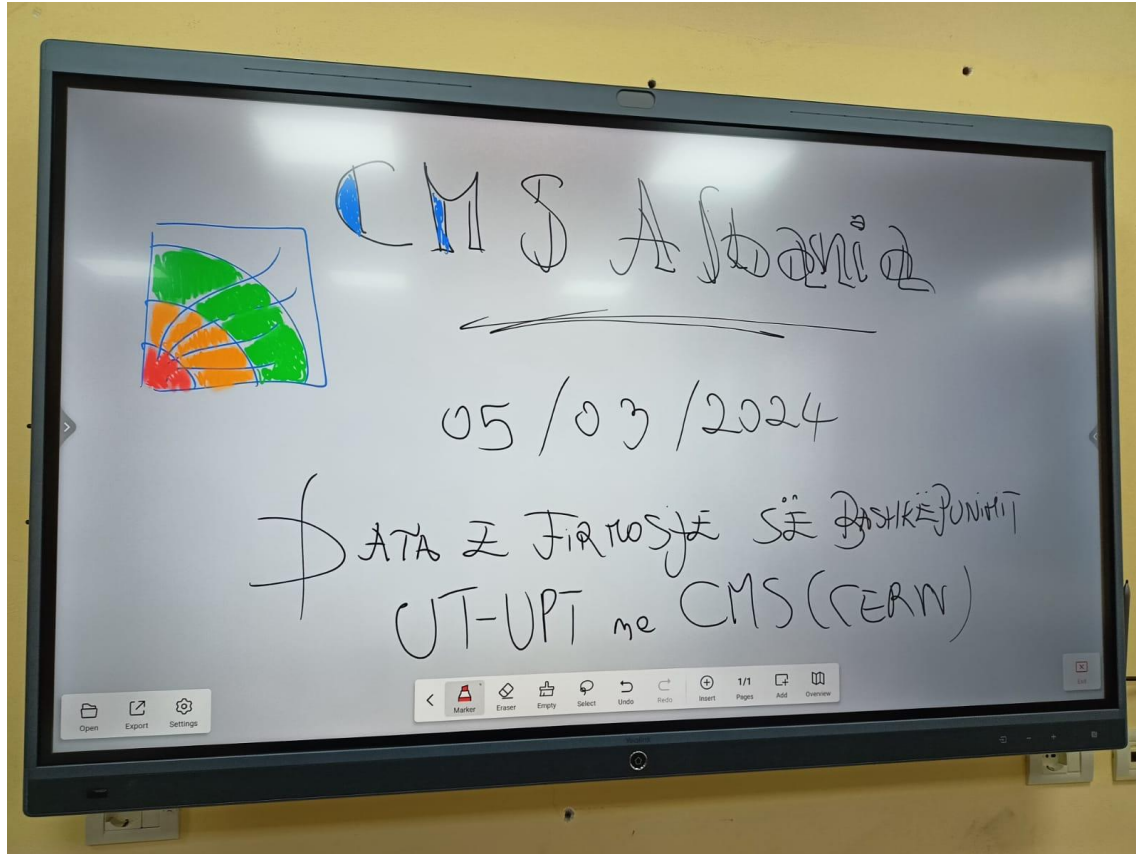 CMS Albania
05/03/2024
DATA E FIRMOSJE SË BASHKËPUNIMIT
UT-UPT me CMS (CERN)
Open Export Settings
Marker Eraser Empty Select Undo Redo Insert 1/1 Pages Add Overview
Exit